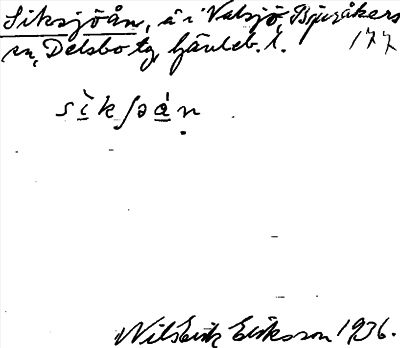 Siksjöån, å i Valsjö, Bjuråkers
sn, Delsbo tg, Gävleb. l. 177
sìkʃəán
Nils Erik Eriksson 1936.